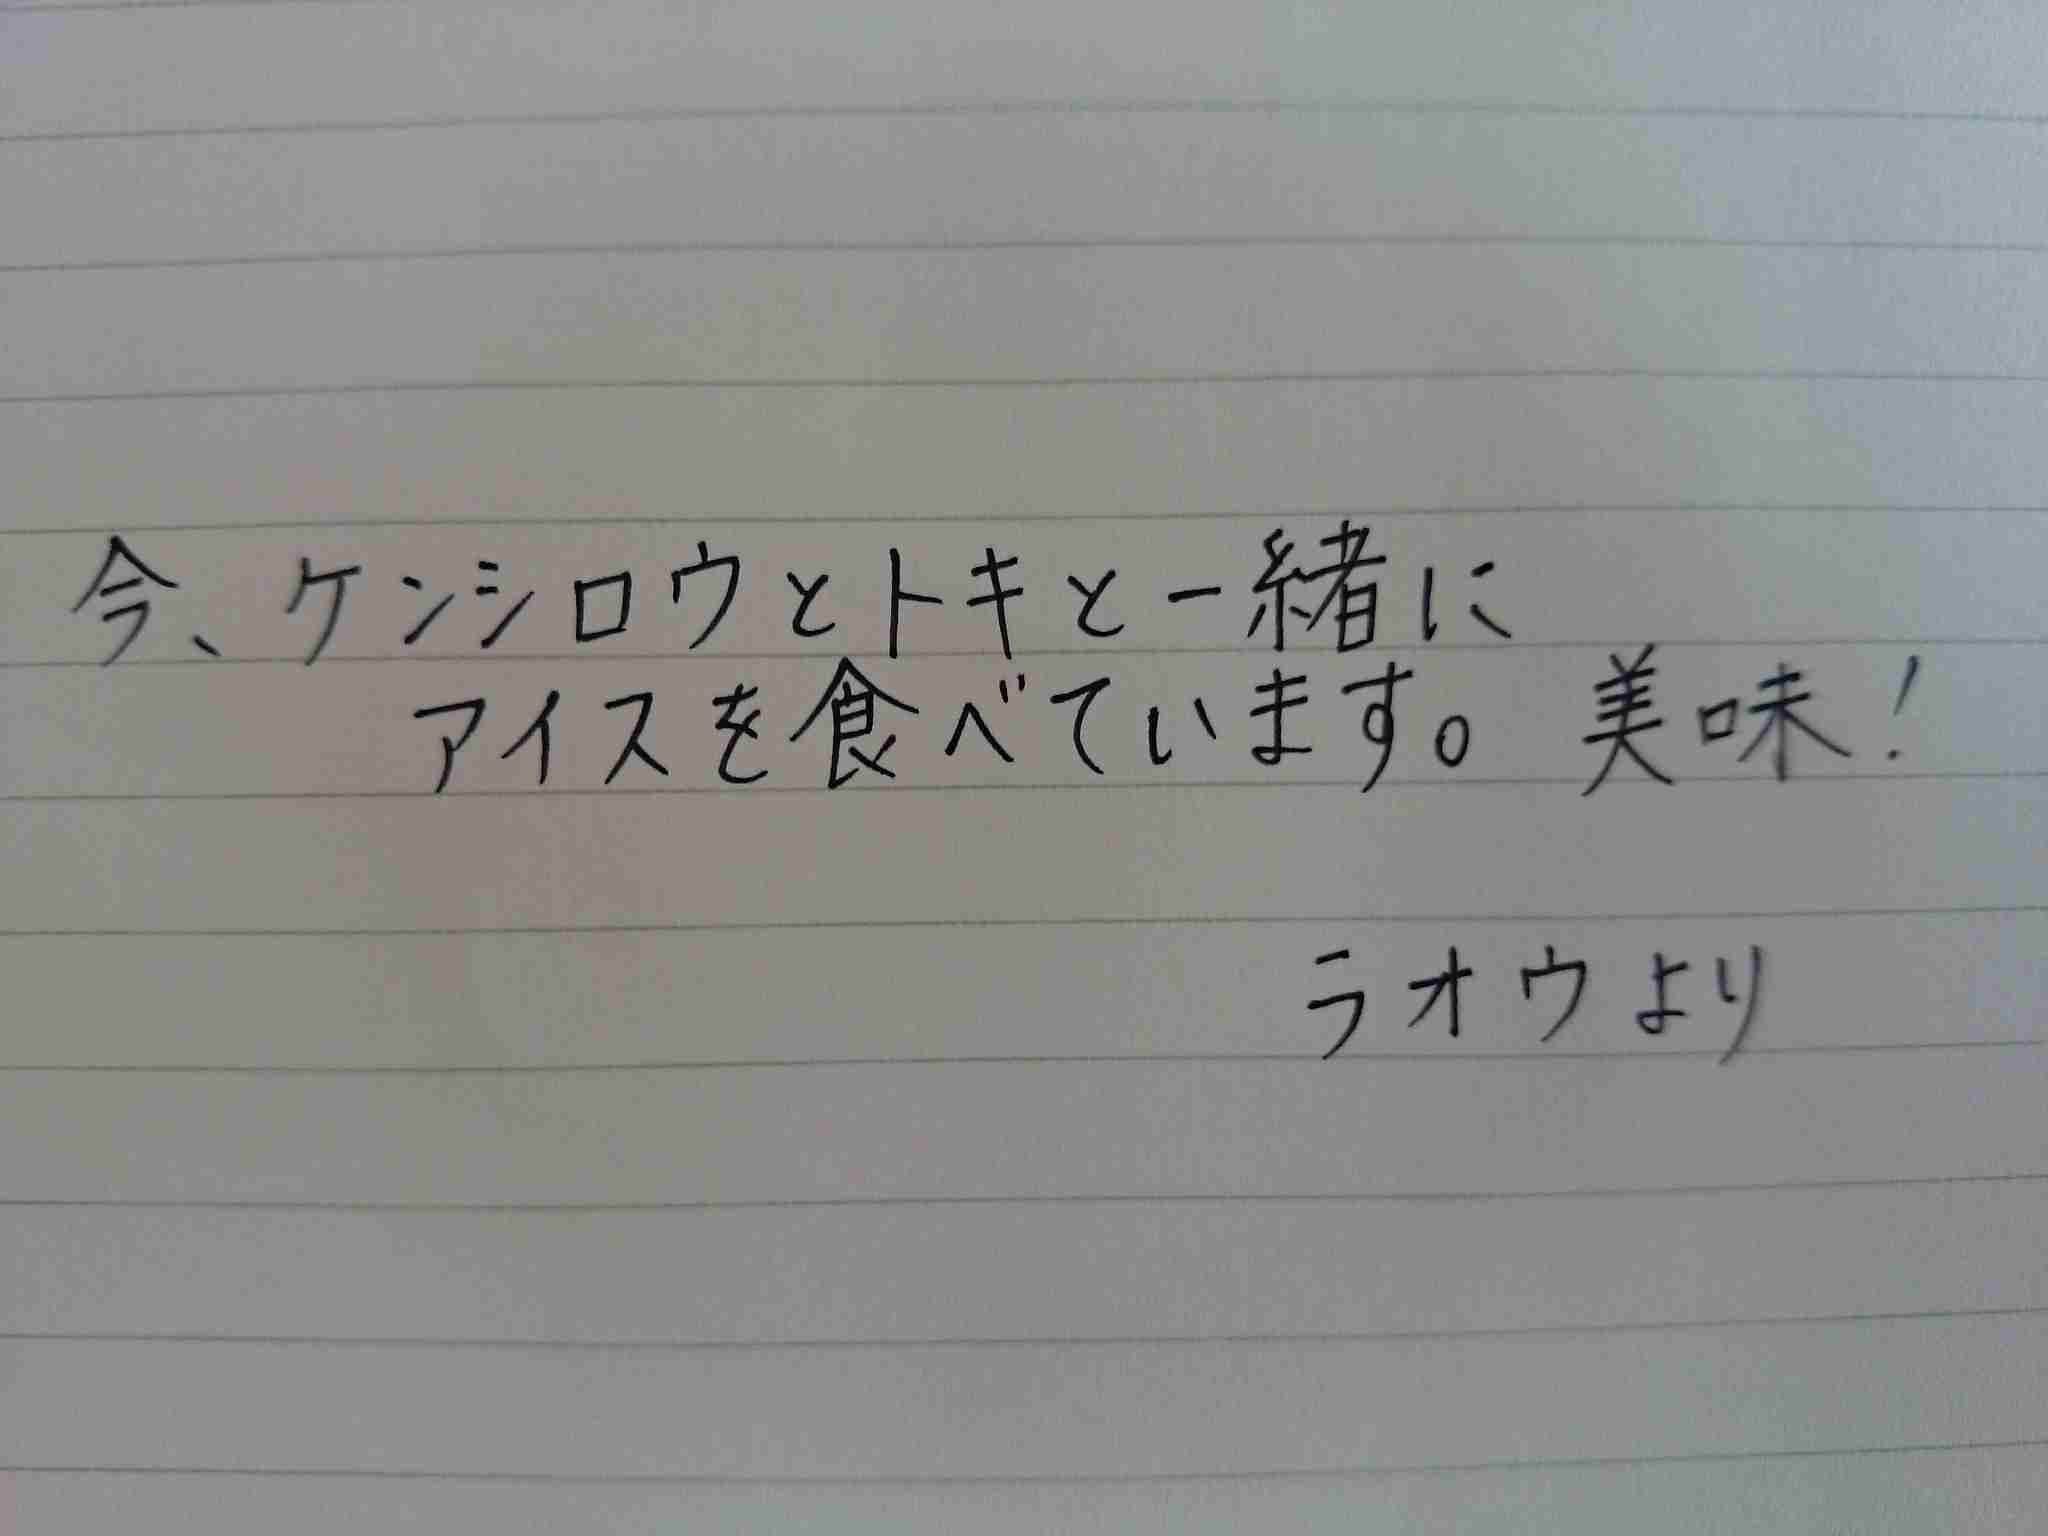 今、ケンシロウとトキと一緒に
アイスを食べています。美味!
ラオウより